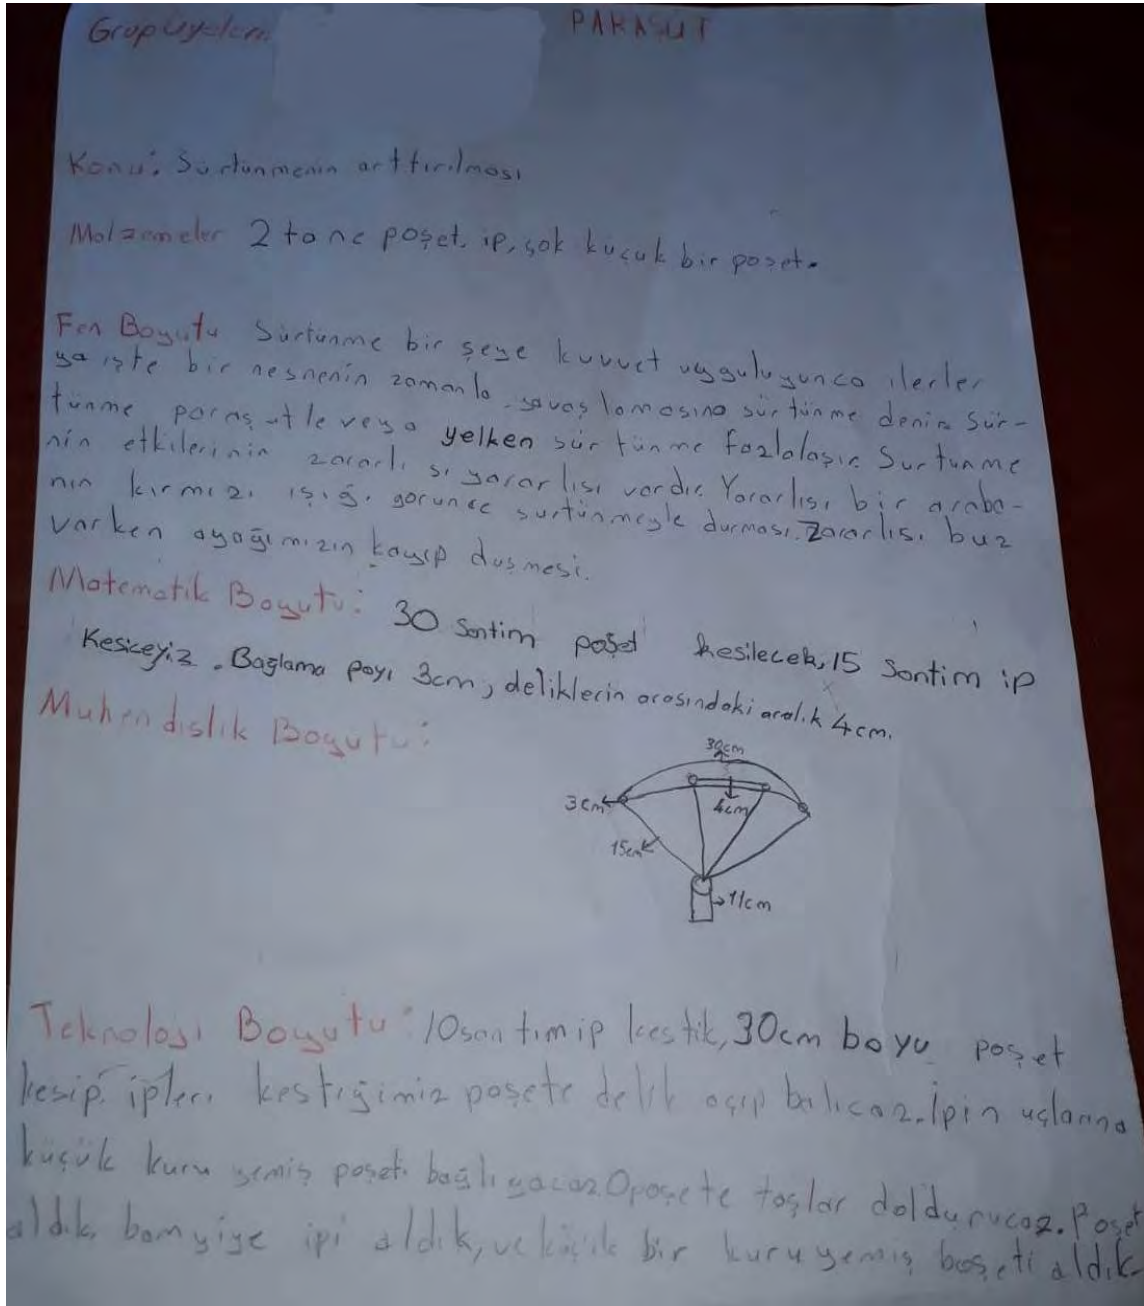 Grup Üyeleri
PARAŞÜT
Konu: Sürtünmenin arttırılması
Malzemeler 2 tane poşet, ip, çok küçük bir poşet.
Fen Boyutu Sürtünme bir şeye kuvvet uyguluyunca ilerler
ya işte bir nesnenin zamanla yavaşlamasına sürtünme denir. Sür-
tünme paraşütle veya yelken sürtünme fazlalaşır. Surtunme
nin etkilerinin zararlı sı yararlısı vardır. Yararlısı bir araba-
nın kırmızı ışığı görünce surtünmeyle durması. Zararlısı buz
varken ayağımızın kayıp duşmesi.
Matematik Boyutu: 30 Santim poşet kesilecek, 15 Santim ip
Kesiceyiz. Bağlama payı 3cm, deliklerin arasındaki aralık 4cm.
Muhendislik Boyutu:
30cm
3cm
4cm
15cm
11cm
Teknoloji Boyutu: 10 santim ip kestik, 30cm boyu poşet
kesip, ipleri kestiğimiz poşete delik açıp balıcaz. İpin uçlarına
küçük kuru yemiş poşeti bağlıyacaz. O poşete taşlar doldurucaz. Poşet
aldık, bamyiye ipi aldık, ve küçük bir kuruyemiş boşeti aldık.